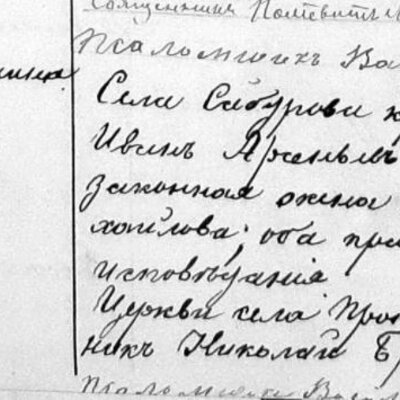 Священникъ
Псаломщикъ Ва
Села Сабурова к
Иванъ Арсеньевъ
законная жена
хайлова, оба пра
исповѣданія
Церкви села Про
никъ Николай Б
Псаломщикъ Васил